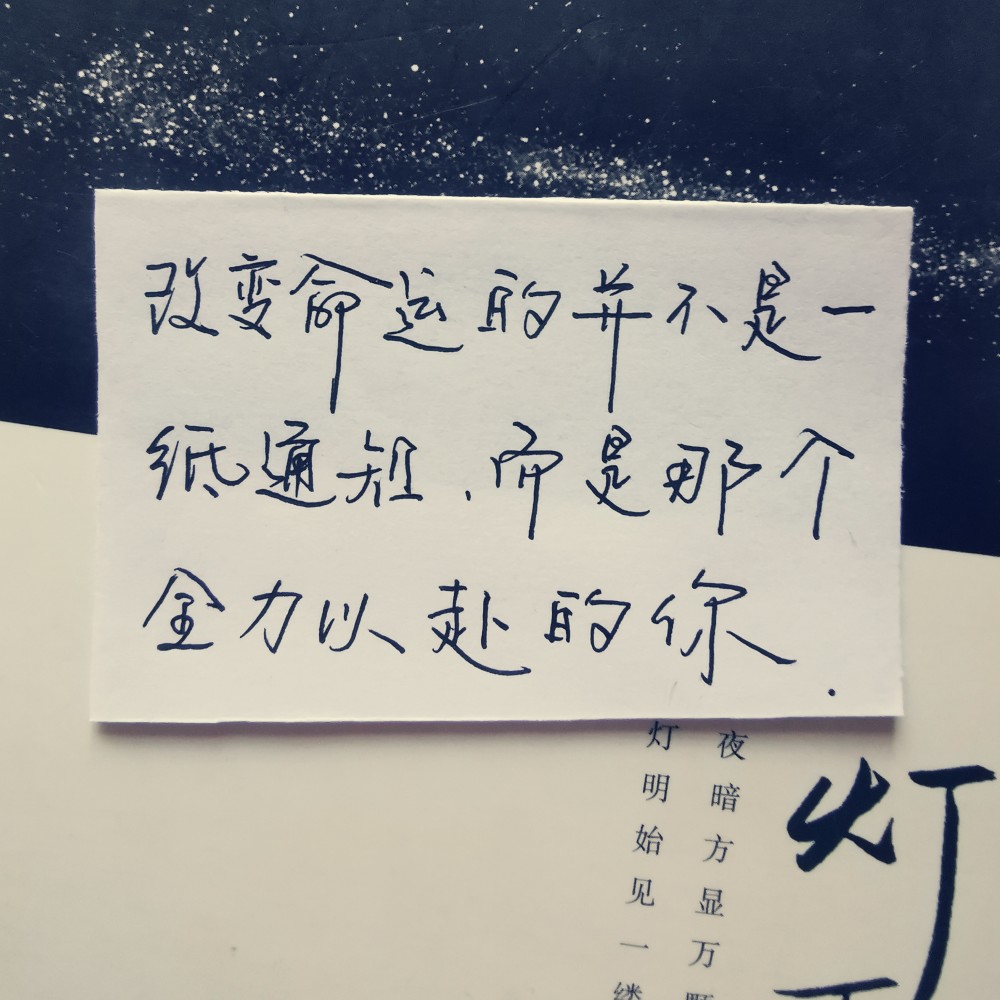 改变命运的并不是一
纸通知、而是那个
全力以赴的你.
夜暗方显万颗
灯明始见一缕
灯